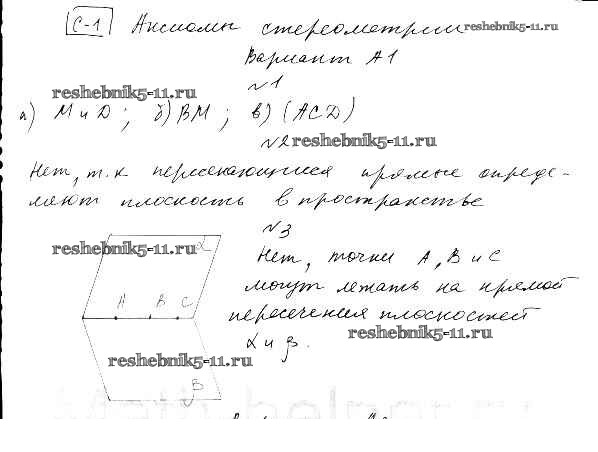 С-1 Аксиомы стереометрии reshebnik5-11.ru
Вариант А1
reshebnik5-11.ru
№1
а) M и D; б) BM; в) (ACD)
№2 reshebnik5-11.ru
Нет, т.к пересекающиеся прямые опреде-
ляют плоскость в пространстве
№3
reshebnik5-11.ru α
Нет, точки А, В и С
могут лежать на прямой
A B C
пересечения плоскостей
reshebnik5-11.ru
α и β.
reshebnik5-11.ru
β